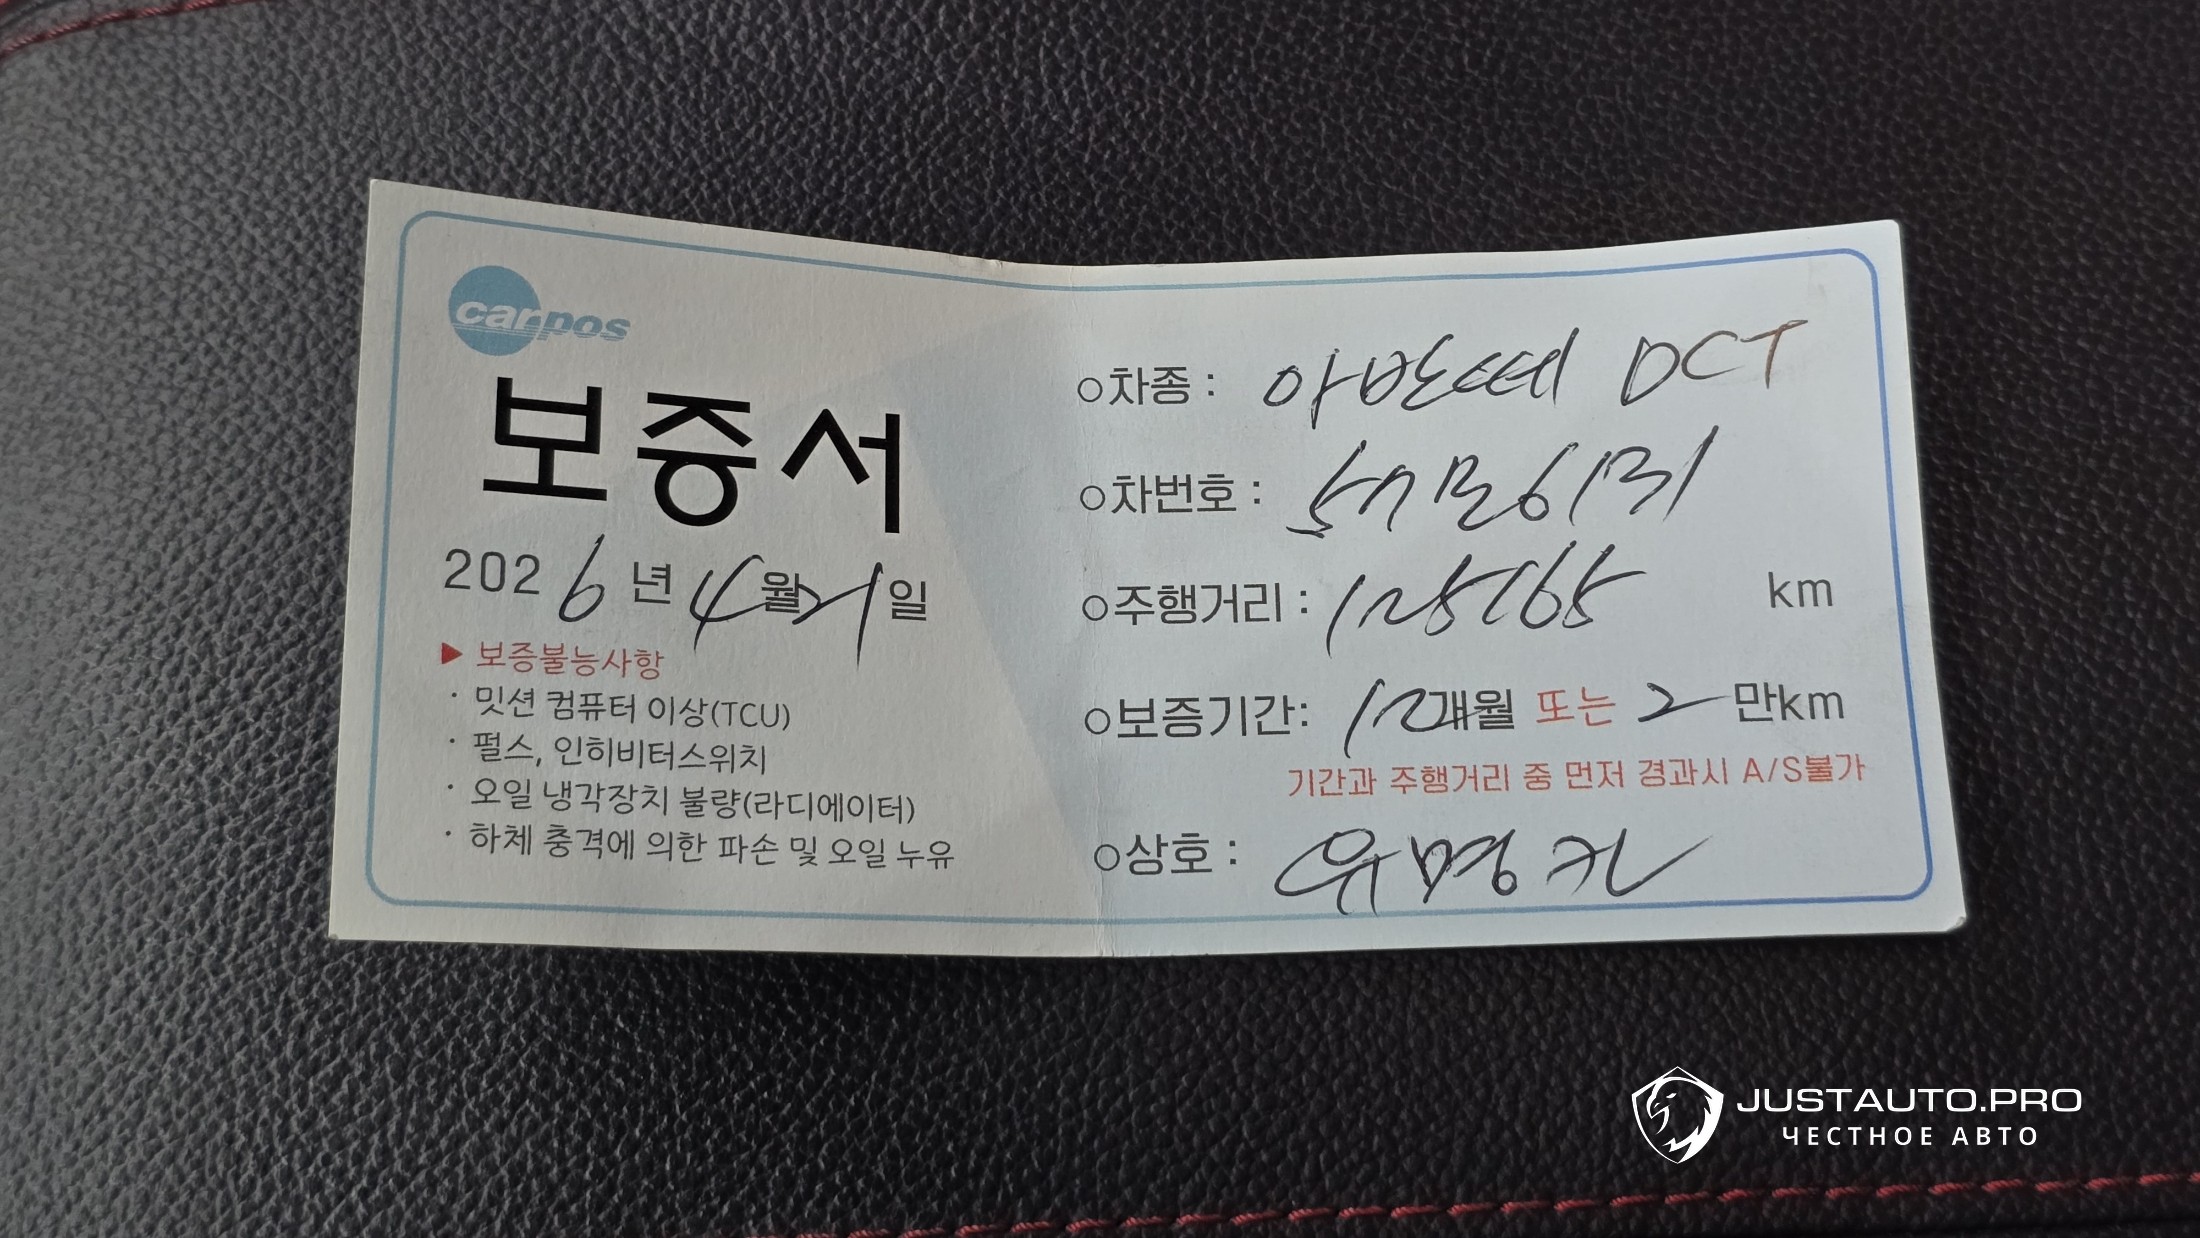 carpos
보증서
2026년 4월 21일
▶ 보증불능사항
· 밋션 컴퓨터 이상(TCU)
· 펄스, 인히비터스위치
· 오일 냉각장치 불량(라디에이터)
· 하체 충격에 의한 파손 및 오일 누유
○차종 : 아반떼 DCT
○차번호 :
○주행거리 : km
○보증기간: 12개월 또는 2만km
기간과 주행거리 중 먼저 경과시 A/S불가
○상호 : 유명카
JUSTAUTO.PRO
ЧЕСТНОЕ АВТО